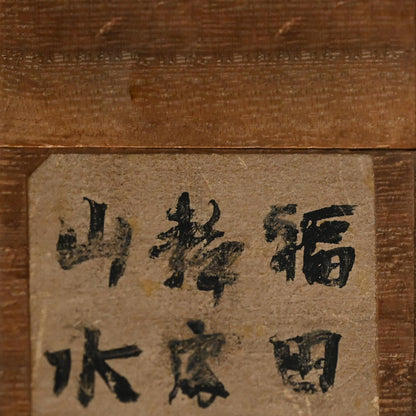 福田
静處
山水